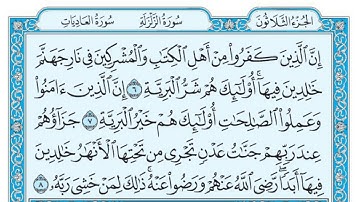 الجُزْءُ الثَّلَاثُونَ
سُورَةُ الزَّلْزَلَةِ
سُورَةُ العَادِيَاتِ
إِنَّ ٱلَّذِينَ كَفَرُواْ مِنْ أَهْلِ ٱلْكِتَٰبِ وَٱلْمُشْرِكِينَ فِى نَارِ جَهَنَّمَ
خَٰلِدِينَ فِيهَآۚ أُوْلَٰٓئِكَ هُمْ شَرُّ ٱلْبَرِيَّةِ ۝٦ إِنَّ ٱلَّذِينَ ءَامَنُواْ
وَعَمِلُواْ ٱلصَّٰلِحَٰتِ أُوْلَٰٓئِكَ هُمْ خَيْرُ ٱلْبَرِيَّةِ ۝٧ جَزَآؤُهُمْ
عِندَ رَبِّهِمْ جَنَّٰتُ عَدْنٍ تَجْرِى مِن تَحْتِهَا ٱلْأَنْهَٰرُ خَٰلِدِينَ
فِيهَآ أَبَدًاۖ رَّضِىَ ٱللَّهُ عَنْهُمْ وَرَضُواْ عَنْهُۚ ذَٰلِكَ لِمَنْ خَشِىَ رَبَّهُۥ ۝٨